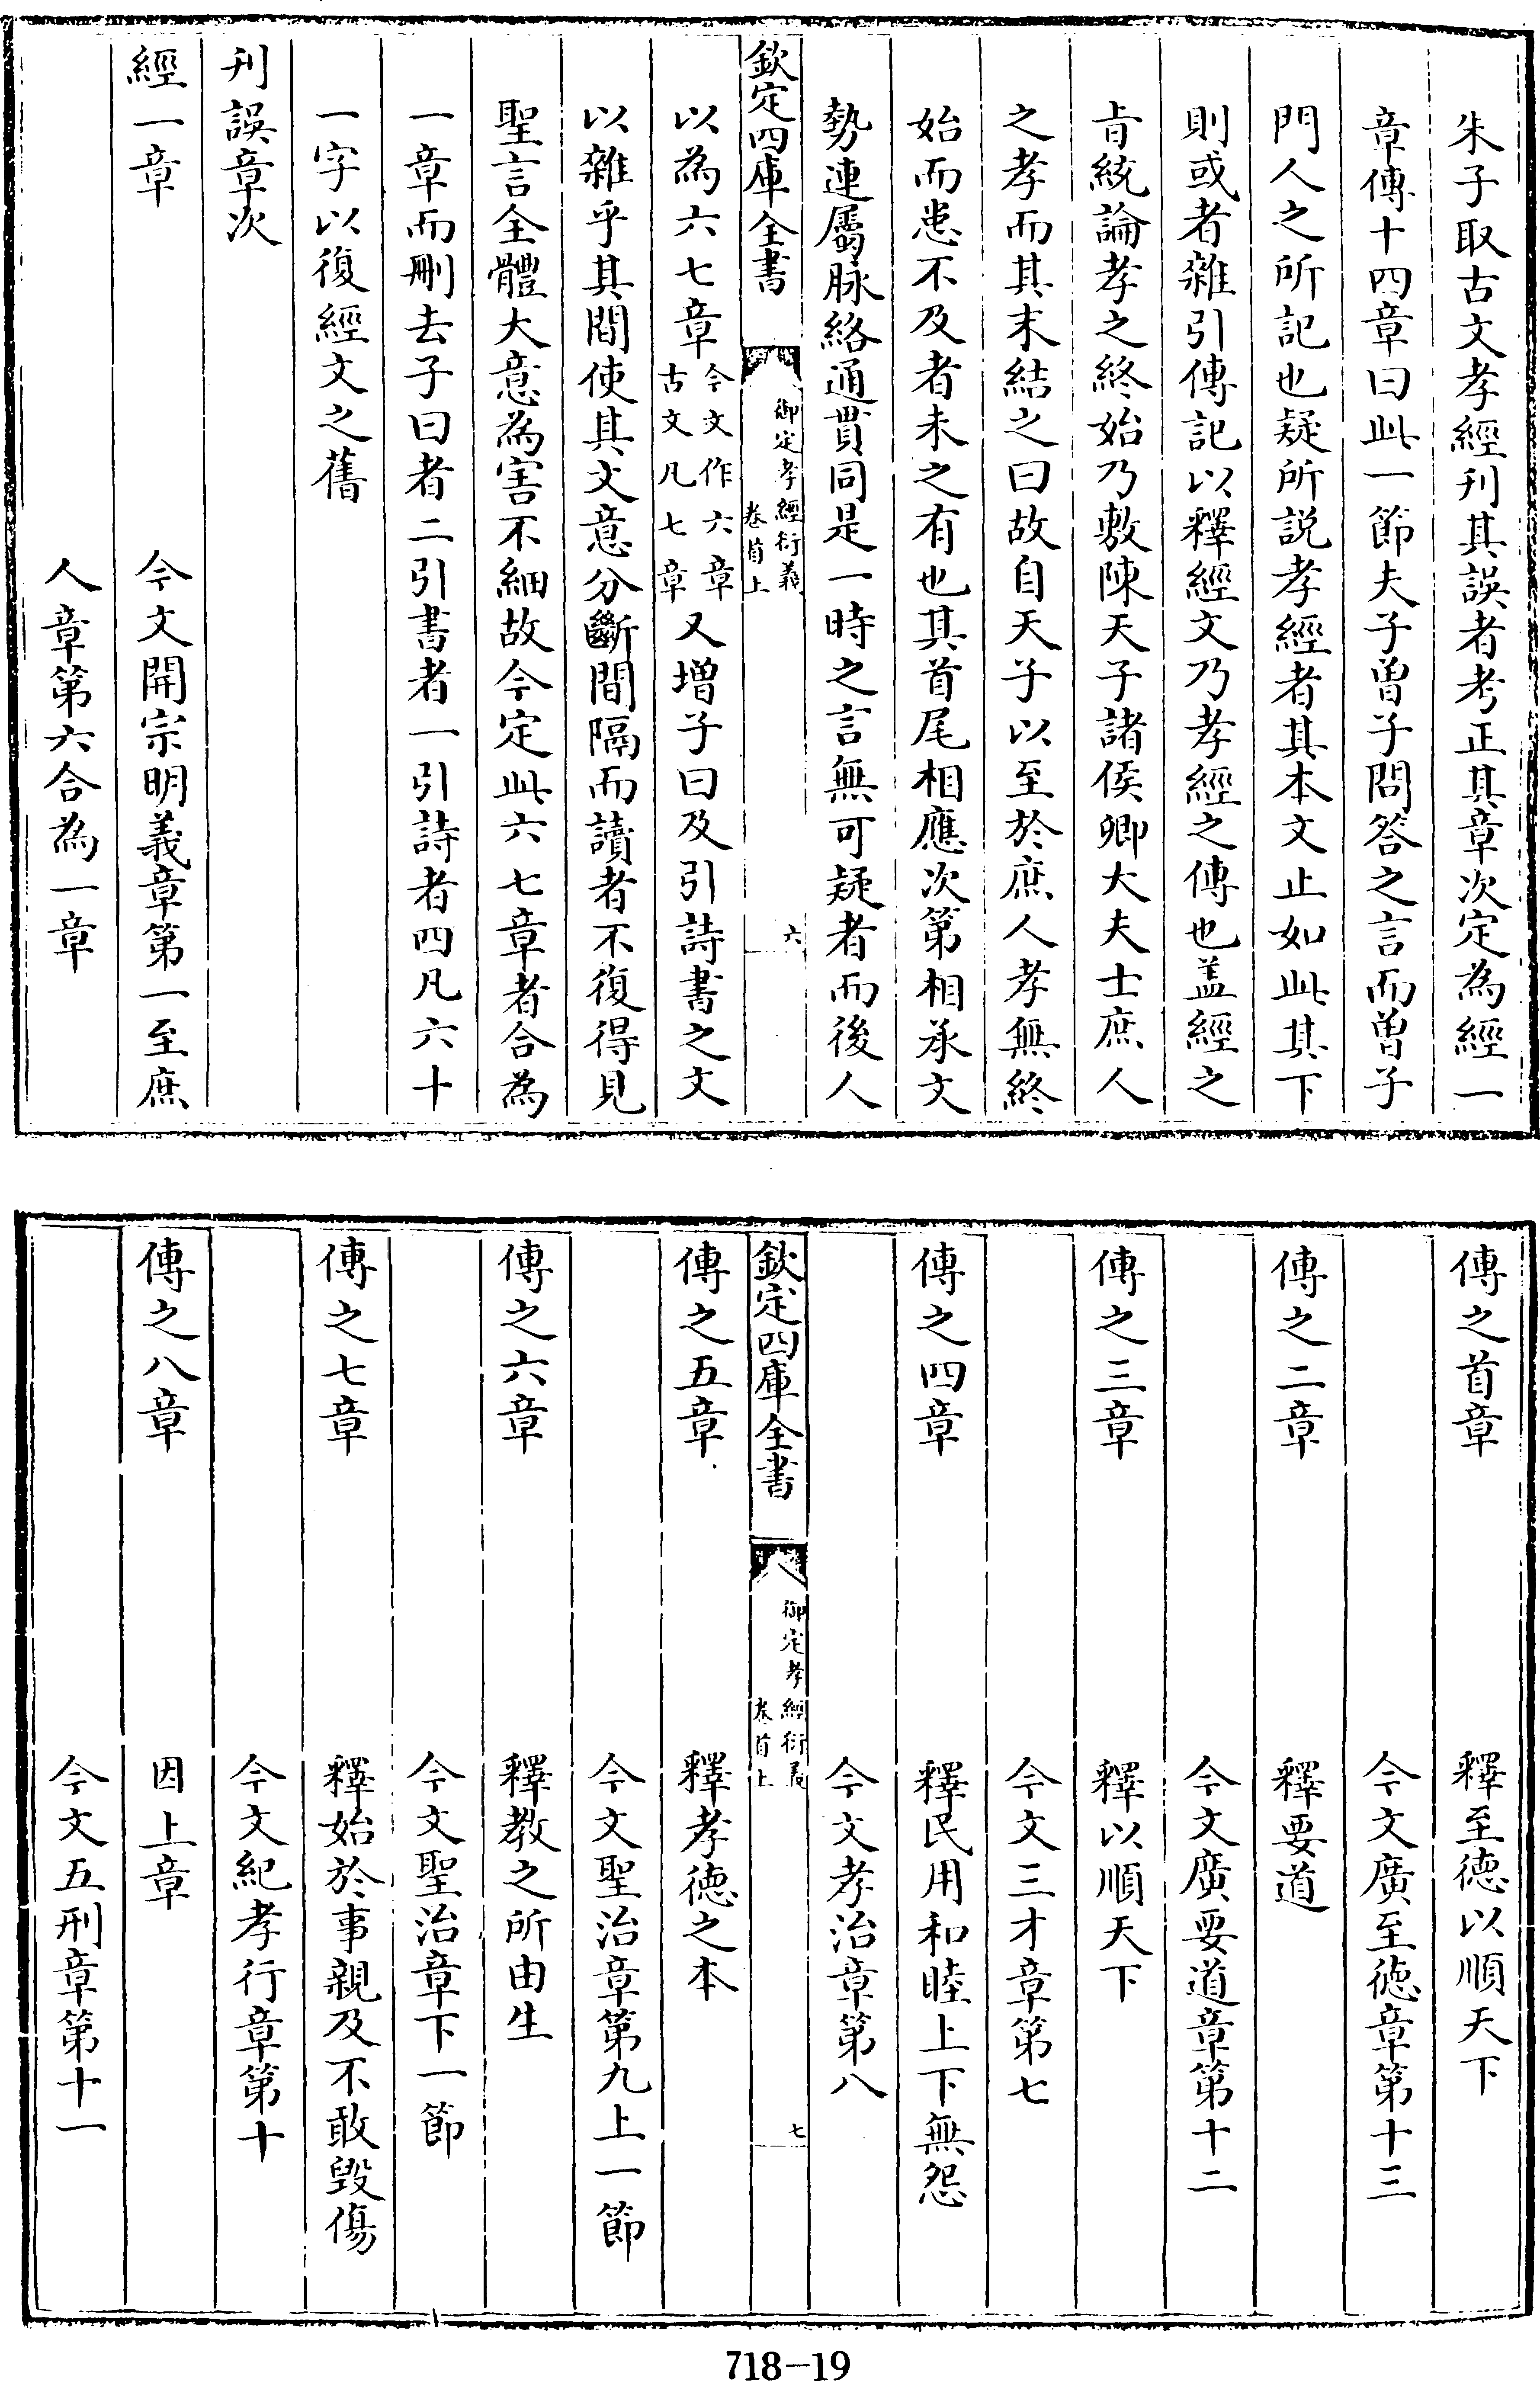 朱子取古文孝經刋其誤者考正其章次定為經一
章傳十四章曰此一節夫子曽子問答之言而曽子
門人之所記也疑所説孝經者其本文止如此其下
則或者雜引傳記以釋經文乃孝經之傳也盖經之
㫖統論孝之終始乃敷陳天子諸侯卿大夫士庶人
之孝而其末結之曰故自天子以至於庶人孝無終
始而患不及者未之有也其首尾相應次第相承文
勢連屬脉絡通貫同是一時之言無可疑者而後人
欽定四庫全書 御定孝經衍義 卷首上 六
以為六七章今文作六章古文凡七章又增子曰及引詩書之文
以雜乎其間使其文意分斷間隔而讀者不復得見
聖言全體大意為害不細故今定此六七章者合為
一章而刪去子曰者二引書者一引詩者四凡六十
一字以復經文之舊
刋誤章次
經一章 今文開宗明義章第一至庶
人章第六合為一章
傳之首章 釋至徳以順天下
今文廣至徳章第十三
傳之二章 釋要道
今文廣要道章第十二
傳之三章 釋以順天下
今文三才章第七
傳之四章 釋民用和睦上下無怨
今文孝治章第八
欽定四庫全書 御定孝經衍義 卷首上 七
傳之五章 釋孝徳之本
今文聖治章第九上一節
傳之六章 釋教之所由生
今文聖治章下一節
傳之七章 釋始於事親及不敢毀傷
今文紀孝行章第十
傳之八章 因上章
今文五刑章第十一
718-19